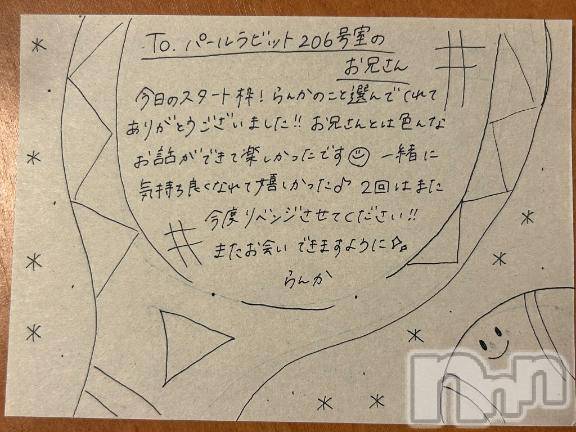 To. パールラビット206号室の
お兄さん
今日のスタート枠！らんかのこと選んでくれて
ありがとうございました!! お兄さんとは色んな
お話ができて楽しかったです 一緒に
気持ち良くなれて嬉しかった♪ 2回はまた
今度リベンジさせてください!!
またお会いできますように☆
らんか